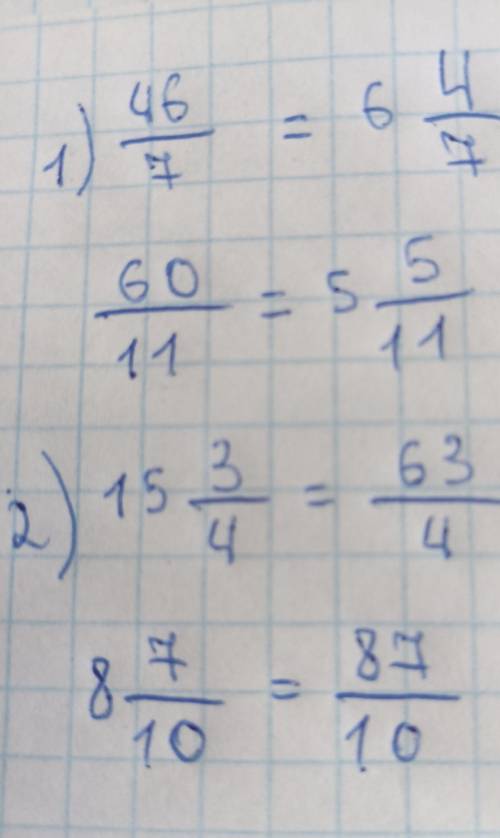 1) 46/7 = 6 4/7
60/11 = 5 5/11
2) 15 3/4 = 63/4
8 7/10 = 87/10